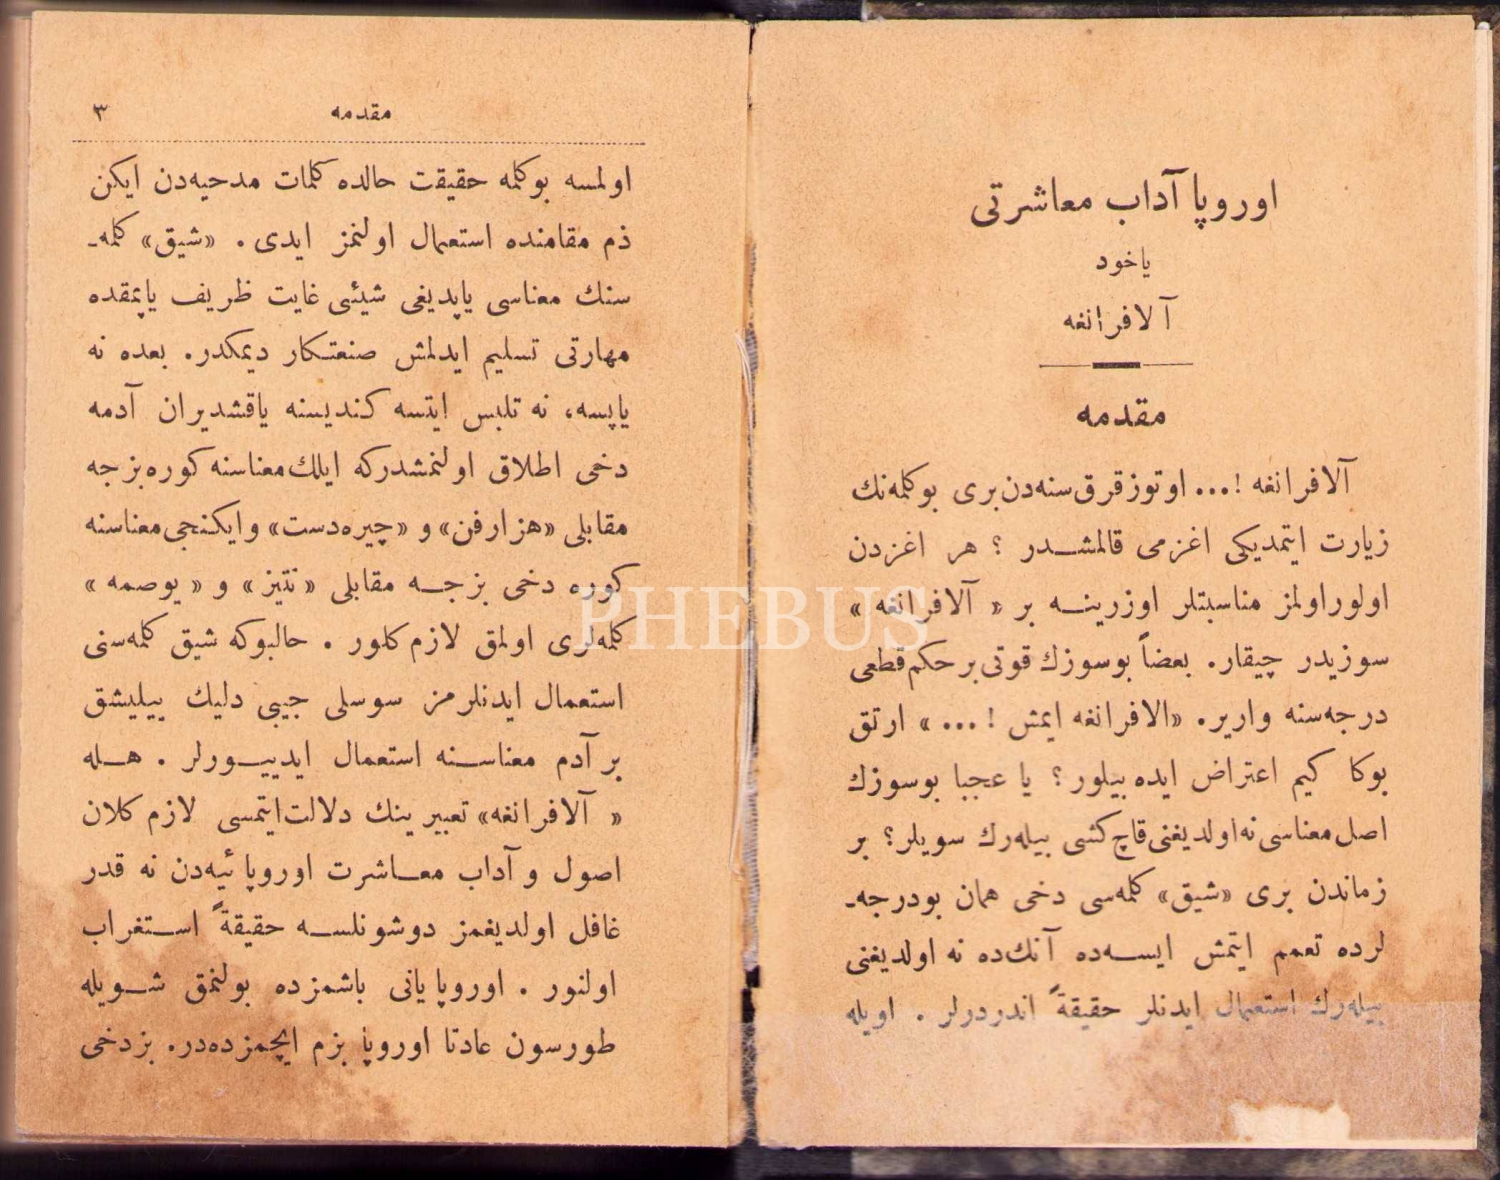 اوروپا آداب معاشرتی
یاخود
آلافرانغه
مقدمه
آلافرانغه !... اوتوز قرق سنه‌دن بری بوكلمه‌نك
زیارت ایتمدیكی اغزمی قالمشدر ؟ هر اغزدن
اولور اولمز مناسبتلر اوزرینه بر « آلافرانغه »
سوزیدر چیقار. بعضاً بوسوزك قوتی بر حكم قطعی
درجه‌سنه واریر. «الافرانغه ایمش !... » ارتق
بوكا كیم اعتراض ایده بیلور؟ یا عجبا بوسوزك
اصل معناسی نه اولدیغنی قاچ كشی بیله‌رك سویلر؟ بر
زماندن بری «شیق» كلمه‌سی دخی همان بودرجه-
لرده تعمم ایتمش ایسه‌ده آنك‌ده نه اولدیغنی
بیله‌رك استعمال ایدنلر حقیقةً اندردرلر . اویله
مقدمه ٣
اولمسه بوكلمه حقیقت حالده كلمات مدحیه‌دن ایكن
ذم مقامنده استعمال اولنمز ایدی . «شیق» كلمه-
سنك معناسی یاپدیغی شیئی غایت ظریف یاپمقده
مهارتی تسلیم ایدلمش صنعتكار دیمكدر. بعده نه
یاپسه، نه تلبس ایتسه كندیسنه یاقشدیران آدمه
دخی اطلاق اولنمشدركه ایلك معناسنه كوره بزجه
مقابلی «هزارفن» و «چیره‌دست» و ایكنجی معناسنه
كوره دخی بزجه مقابلی « نتیز » و « یوصمه »
كلمه‌لری اولمق لازم كلور . حالبوكه شیق كلمه‌سنی
استعمال ایدنلرمز سوسلی جیبی دلیك بیلیشق
بر آدم معناسنه استعمال ایدییورلر . هله
« آلافرانغه» تعبیرینك دلالت ایتمسی لازم كلان
اصول و آداب معاشرت اوروپائیه‌دن نه قدر
غافل اولدیغمز دوشونلسه حقیقةً استغراب
اولنور . اوروپایانی باشمزده بولنمق شویله
طورسون عادتا اوروپا بزم ایچمزده‌در. بزدخی
PHEBUS